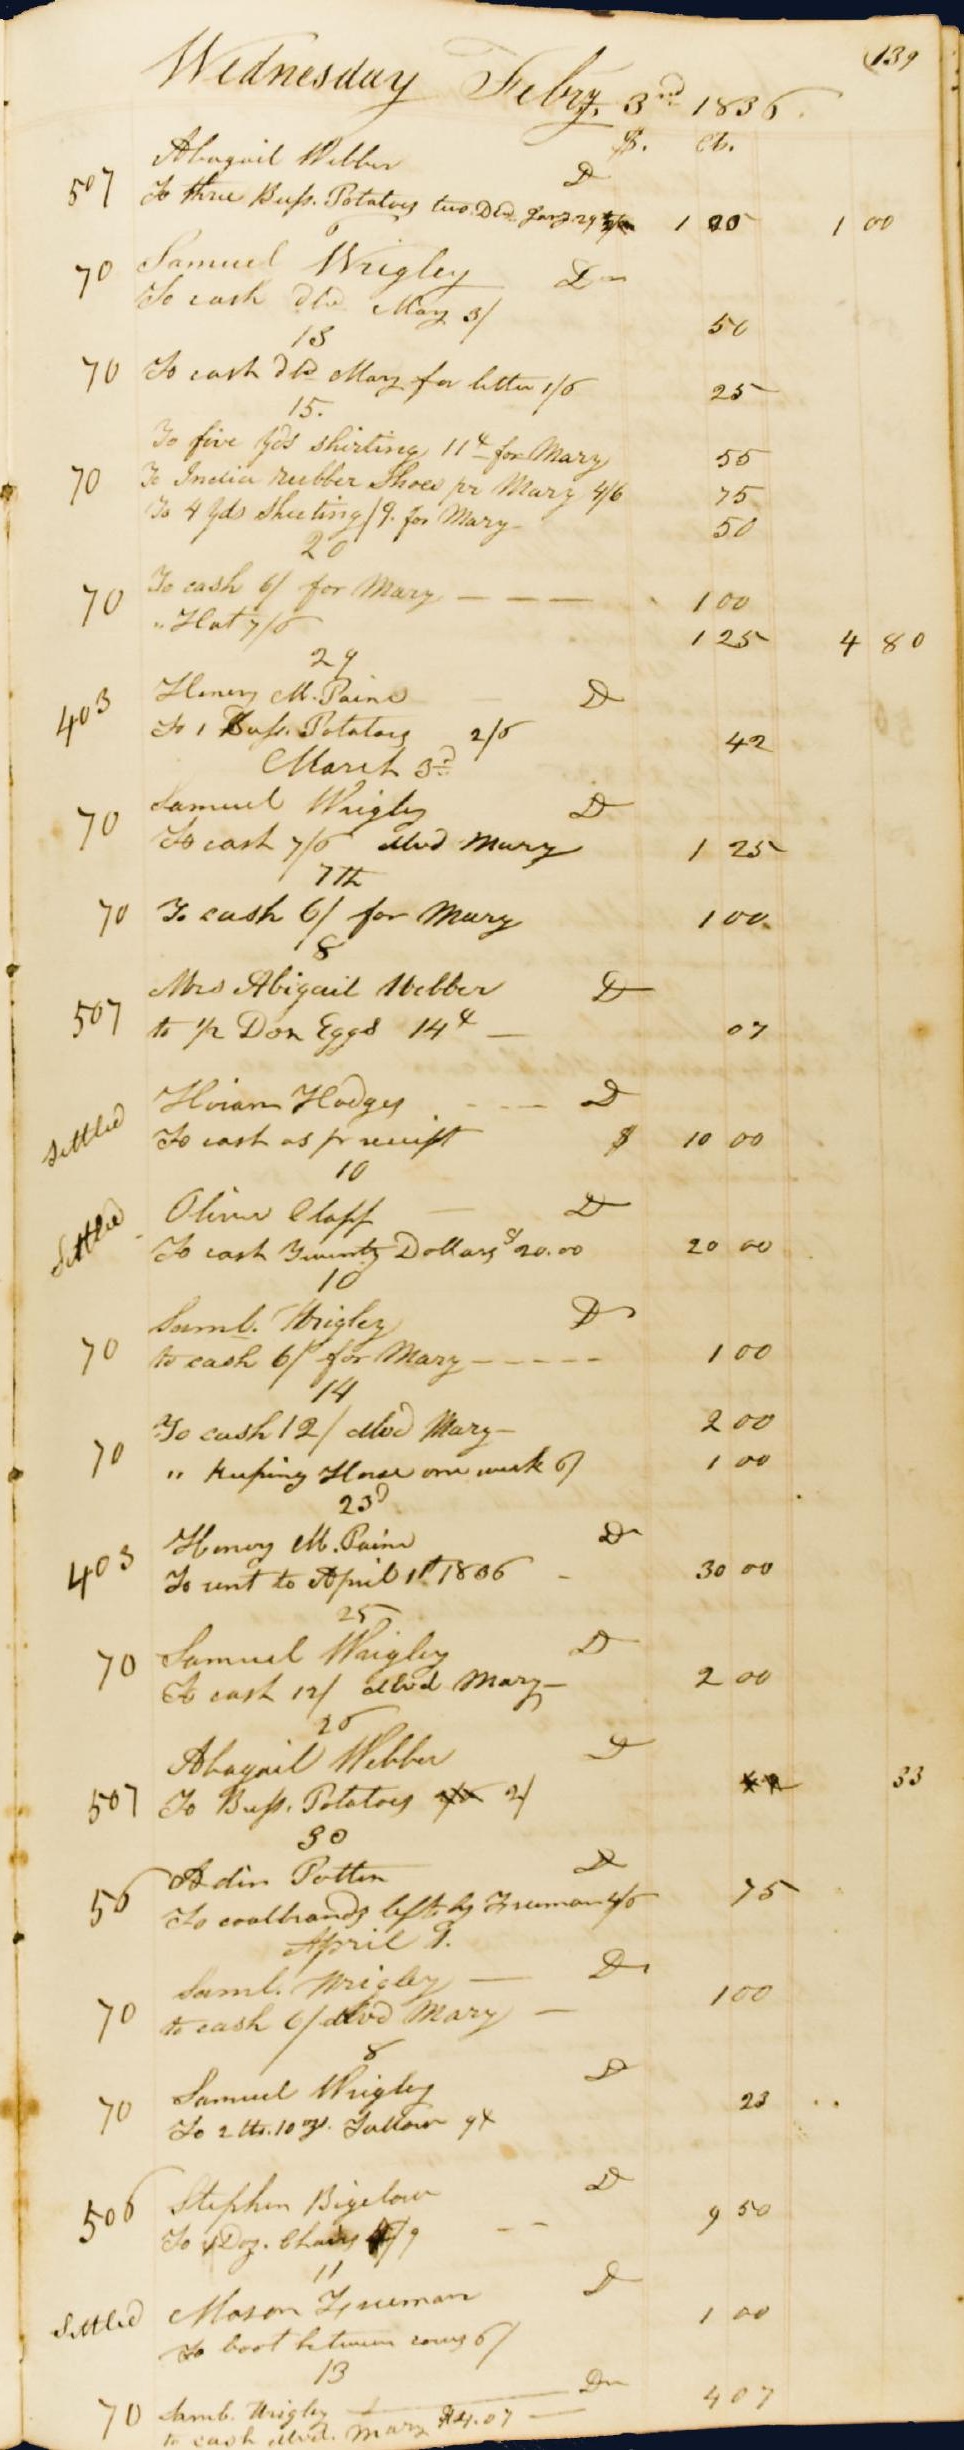 139
Wednesday Febry. 3rd 1836.
$. cts.
Abagail Webber D
507 To three Buss. Potatoes two Dld Jany 29 1 00
6
70 Samuel Wrigley Dr
To cash dld Mary 3/ 50
13
70 To cash dld Mary for letter 1/6 25
15.
To five Yds shirting 11d for Mary 55
70 To India Rubber Shoes pr Mary 4/6 75
To 4 Yds Sheeting /9. for Mary 50
20
70 To cash 6/ for Mary — — — 1 00
" Hat 7/6 1 25 4 80
29
403 Henry M. Paine D
To 1 Buss. Potatoes 2/6 42
March 3d
70 Samuel Wrigley D
To cash 7/6 dlvd Mary 1 25
7th
70 To cash 6/ for Mary 1 00
8
Mrs Abigail Webber D
507 to 1/2 Dox Eggs 14d — 07
Hiram Hodges - - - D
Settled To cash as pr receipt $ 10 00
10
Settled Oliver Clapp — D
To cash Twenty Dollars $20.00 20 00
10
Saml. Wrigley D
70 to cash 6/ for Mary - - - - - 1 00
14
To cash 12/ dlvd Mary — 2 00
70 " Keeping Horse one week 6/ 1 00
23d
403 Henry M. Paine Dr
To rent to April 1st 1836 - 30 00
25
70 Samuel Wrigley D
To cash 12/ dlvd Mary — 2 00
26
Abagail Webber D
507 To Buss. Potatoes 2/ 33
30
56 Adin Potter D
To left by Freeman 4/6 75
April 9.
Saml. Wrigley — D
70 to cash 6/ dlvd Mary — 1 00
8
70 Samuel Wrigley D
To 2 lbs. 10 oz. Tallow 9d 23
506 Stephen Bigelow D
To 1 Doz. Chairs /9 — 9 50
11
Settled Mason Freeman D
To boot between cows 6/ 1 00
13
70 Saml. Wrigley Dr
to cash dlvd. Mary $4.07 — 4 07